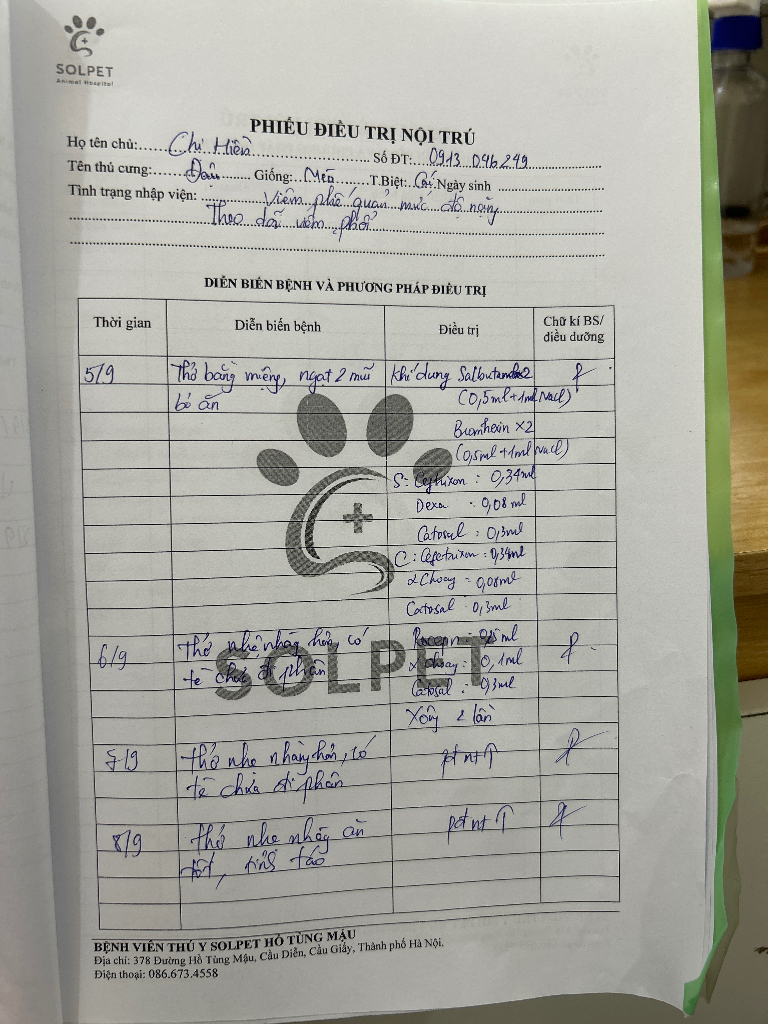 SOLPET
Animal Hospital
PHIẾU ĐIỀU TRỊ NỘI TRÚ
Họ tên chủ: Chị Hiền Số ĐT: 0913 046 249
Tên thú cưng: Đậu Giống: Mèo T.Biệt: Cái Ngày sinh
Tình trạng nhập viện: Viêm phế quản mức độ nặng
Theo dõi viêm phổi
DIỄN BIẾN BỆNH VÀ PHƯƠNG PHÁP ĐIỀU TRỊ
Thời gian Diễn biến bệnh Điều trị Chữ kí BS/
điều dưỡng
5/9 Thở bằng miệng, ngạt 2 mũi Khí dung
bỏ ăn (0,5ml+1ml NaCl)
Bromhexin x2
(0,5ml+1ml NaCl)
S: : 0,34ml
Dexa : 0,08ml
Catosal : 0,3ml
C: : 0,34ml
αChoay : 0,08ml
Catosal : 0,3ml
6/9 thở nhẹ nhàng hơn, có ml
tè chưa đi phân αchoay : 0,1ml
Catosal : 0,3ml
Xông 2 lần
SOLPET
7/9 thở nhẹ nhàng hơn, có pt nt ↑
tè chưa đi phân
8/9 thở nhẹ nhàng ăn pđt nt ↑
tốt, tỉnh táo
BỆNH VIÊN THÚ Y SOLPET HỒ TÙNG MẬU
Địa chỉ: 378 Đường Hồ Tùng Mậu, Cầu Diễn, Cầu Giấy, Thành phố Hà Nội.
Điện thoại: 086.673.4558